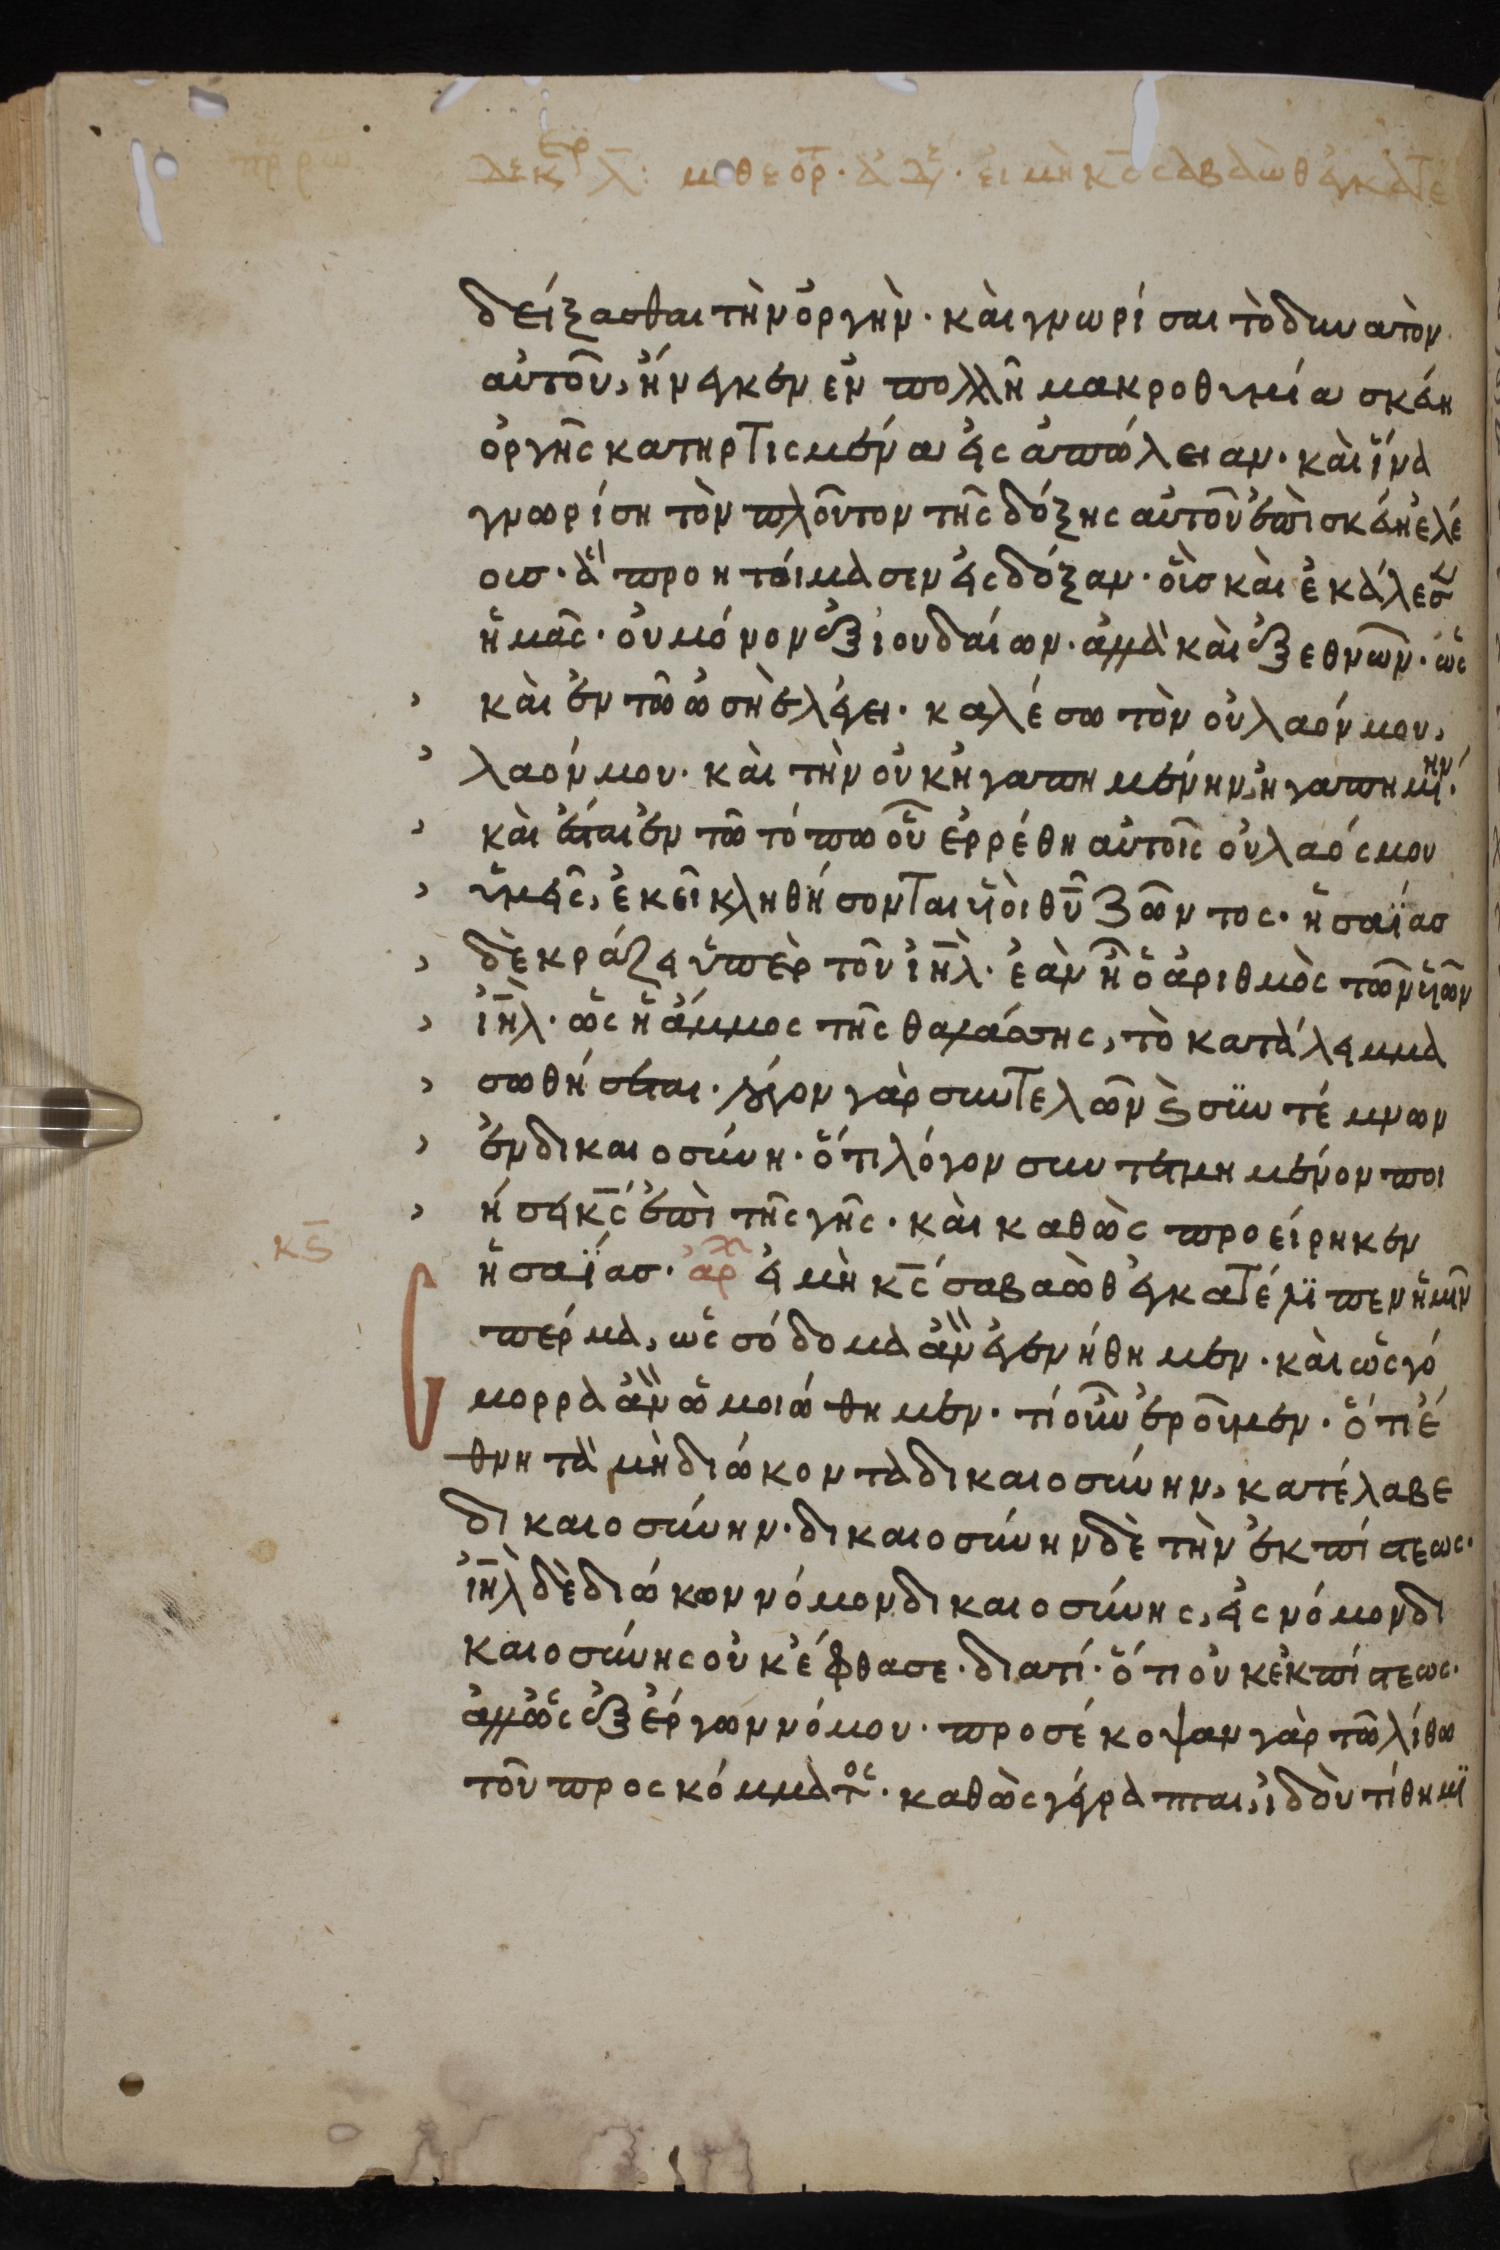 δείξασθαι τὴν ὀργὴν· καὶ γνωρίσαι τὸ δυνατὸν
αὐτοῦ, ἤνεγκεν ἐν πολλῆ μακροθυμία σκεύη
ὀργῆς κατηρτισμένα εἰς ἀπώλειαν· καὶ ἵνα
γνωρίση τὸν πλοῦτον τῆς δόξης αὐτοῦ ἐπὶ σκεύη ἐλέ
ουσ· ἃ προητοίμασεν εἰς δόξαν· οὓσ καὶ ἐκάλεσεν
ἡμᾶς· οὐ μόνον ἐξ ἰουδαίων· ἀλλὰ καὶ ἐξ ἐθνῶν· ὡς
καὶ ἐν τῶ ὡσηὲ λέγει· καλέσω τὸν οὐ λαόν μου,
λαόν μου· καὶ τὴν οὐκ ἠγαπημένην, ἠγαπημένην·
καὶ ἔσται ἐν τῶ τόπω οὗ ἐρρέθη αὐτοῖς οὐ λαός μου
ὑμεῖς, ἐκεῖ κληθήσονται υἱοὶ θῦ ζῶντος· ἡσαΐασ
δὲ κράζει ὑπὲρ τοῦ ἰηλ· ἐὰν ἦ ὁ ἀριθμὸς τῶν υἱῶν
ἰηλ· ὡς ἡ ἄμμος τῆς θαλάσσης, τὸ κατάλειμμα
σωθήσεται· λόγον γὰρ συντελῶν καὶ συντέμνων
ἐν δικαιοσύνη· ὅτι λόγον συντετμημένον ποι
ήσει κς ἐπὶ τῆς γῆς· καὶ καθὼς προείρηκεν
κς
ἡσαΐασ· ἀρχ εἰ μὴ κς σαβαὼθ ἐγκατέλιπεν ἡμῖν
σπέρμα, ὡς σόδομα ἂν ἐγενήθημεν· καὶ ὡς γό
μορρα ἂν ὡμοιώθημεν· τί οὖν ἐροῦμεν· ὅτι ἔ
θνη τὰ μὴ διώκοντα δικαιοσύνην, κατέλαβε
δικαιοσύνην· δικαιοσύνην δὲ τὴν ἐκ πίστεως·
ἰηλ δὲ διώκων νόμον δικαιοσύνης, εἰς νόμον δι
καιοσύνης οὐκ ἔφθασε· διατί· ὅτι οὐκ ἐκ πίστεως·
ἀλλ' ὡς ἐξ ἔργων νόμου· προσέκοψαν γὰρ τῶ λίθω
τοῦ προσκόμματος· καθὼς γέγραπται, ἰδοὺ τίθημι